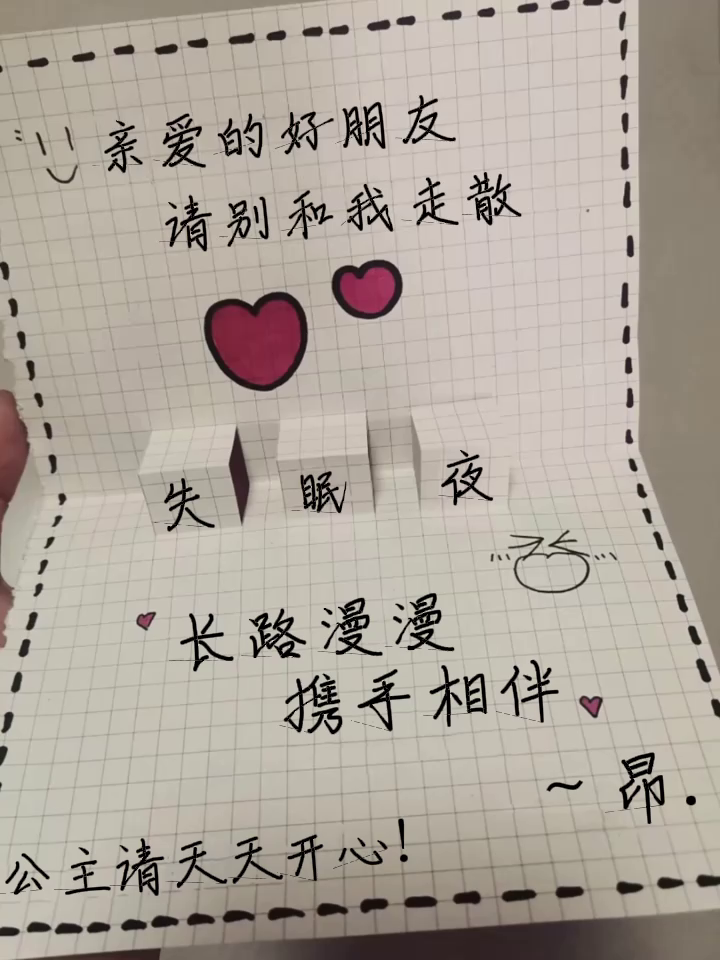 亲爱的好朋友
请别和我走散
失眠夜
长路漫漫
携手相伴
~ 昂.
公主请天天开心!